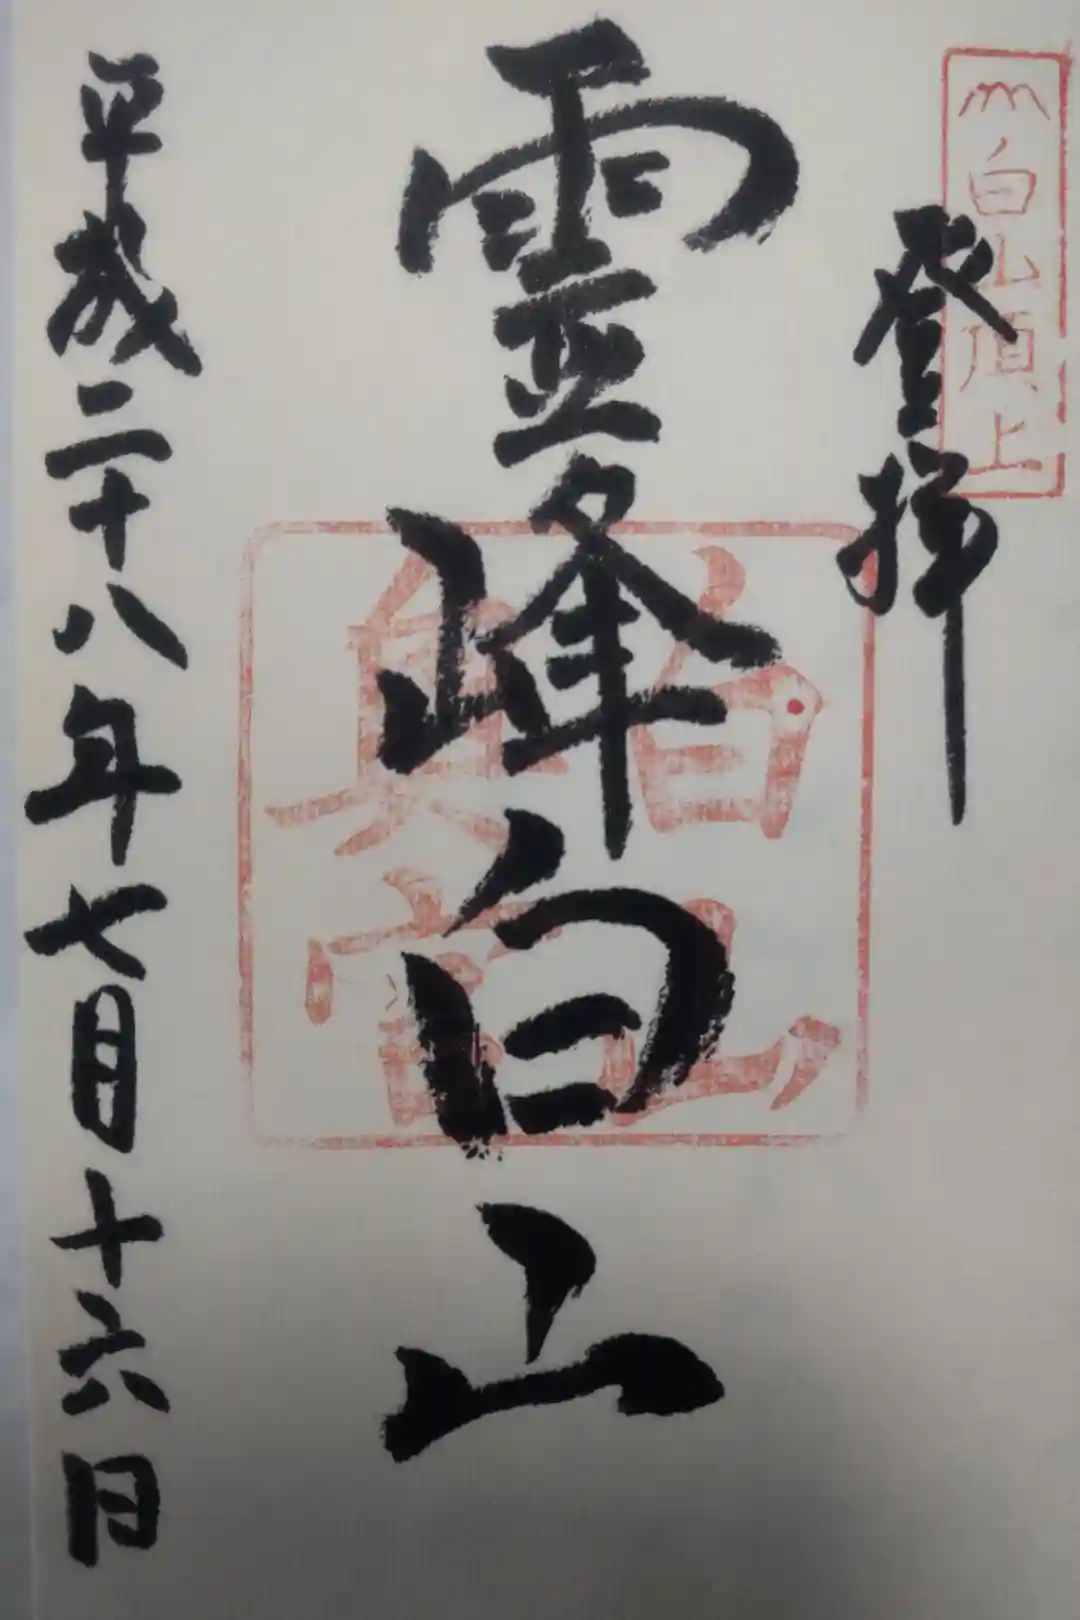 白山頂上
登拝
霊峰白山
白山
奥宮
平成二十八年七月十六日